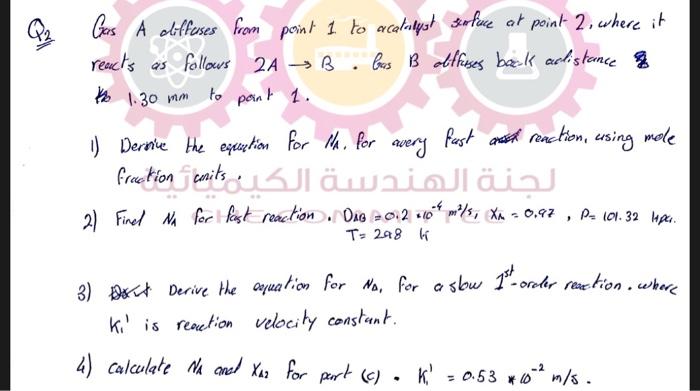 Q2 Gas A diffuses from point 1 to a catalyst surface at point 2, where it
reacts as follows 2A → B . Gas B diffuses back a distance
1.30 mm to point 1.
1) Derive the equation for NA, for a very fast reaction, using mole
fraction units.
لجنة الهندسة الكيميائية
2) Find NA for fast reaction. DAB = 0.2 *10⁻⁴ m²/s, XA = 0.97 , P = 101.32 kPa.
COMMITTEE
T = 298 K
3) Derive the equation for NA, for a slow 1st-order reaction. where
K₁' is reaction velocity constant.
4) calculate NA and XA2 for part (c) . K₁' = 0.53 * 10⁻² m/s.